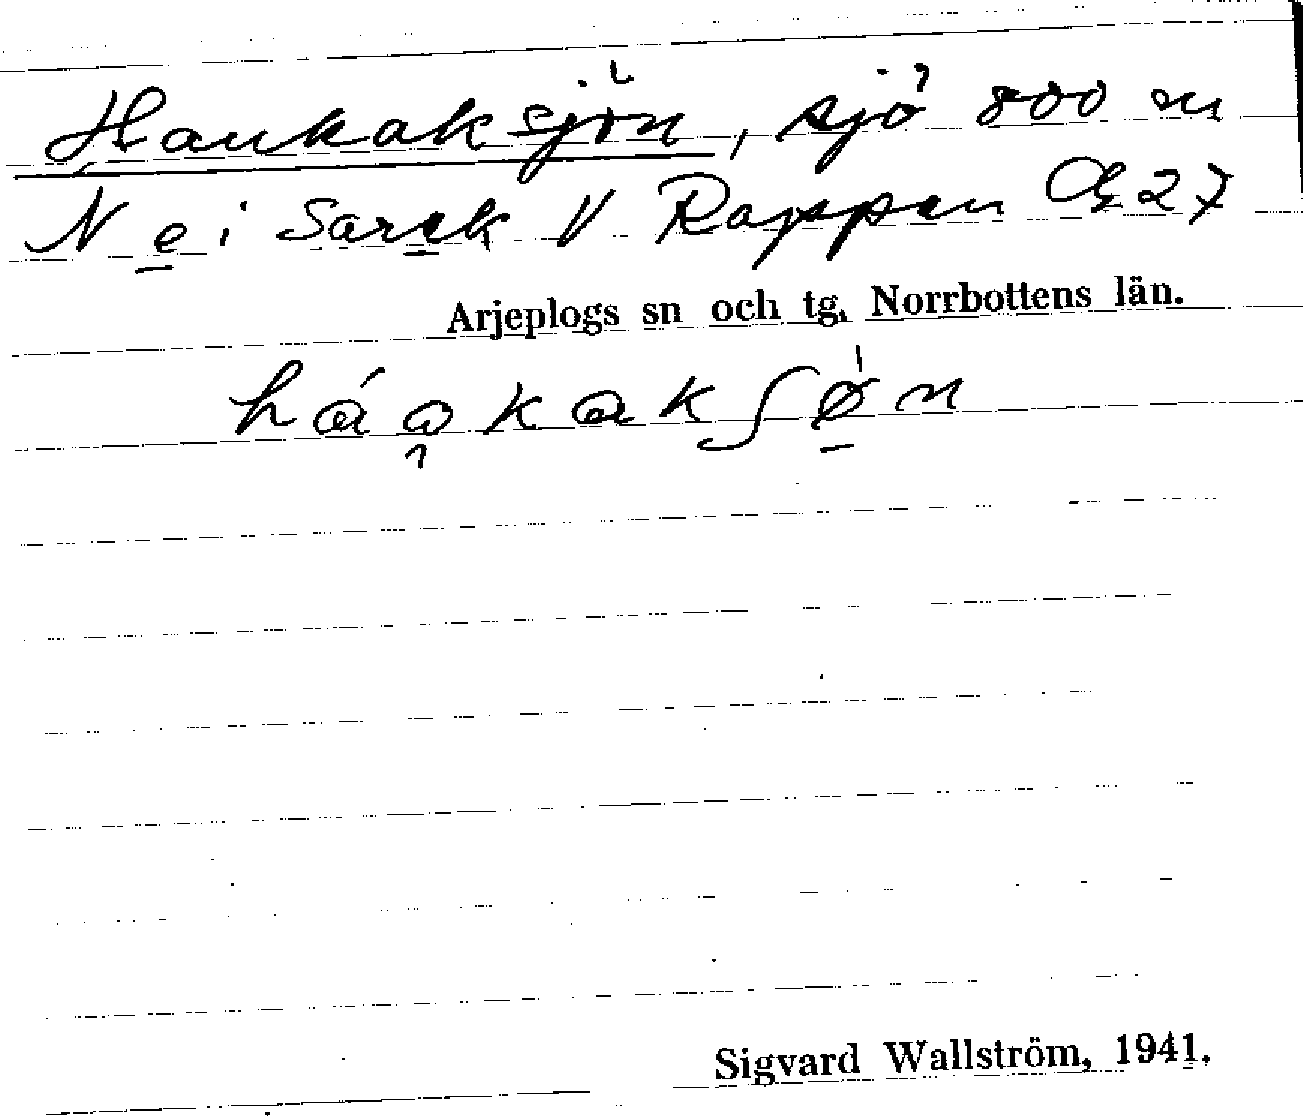 Haukaksjön, sjö 800 m
N e i Sarek V Rappen Œ 27
Arjeplogs sn och tg, Norrbottens län.
háo̯kakʃø̀n
Sigvard Wallström, 1941.